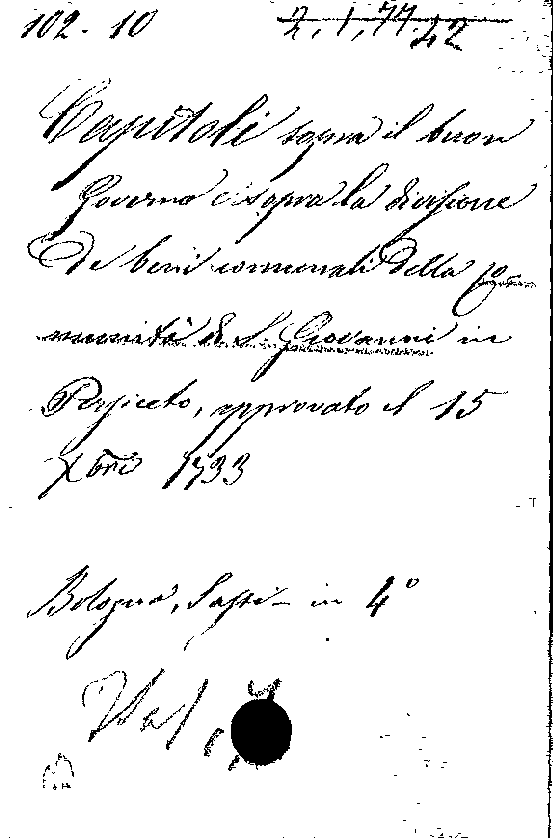 102. 10 2, 1, 77. 42
Capitoli sopra il buon
Governo e sopra la divisione
De beni comunali della Co-
munità di S. Giovanni in
Persiceto, approvato il 15
Xbre 1733
Bologna, Sassi - in 4º